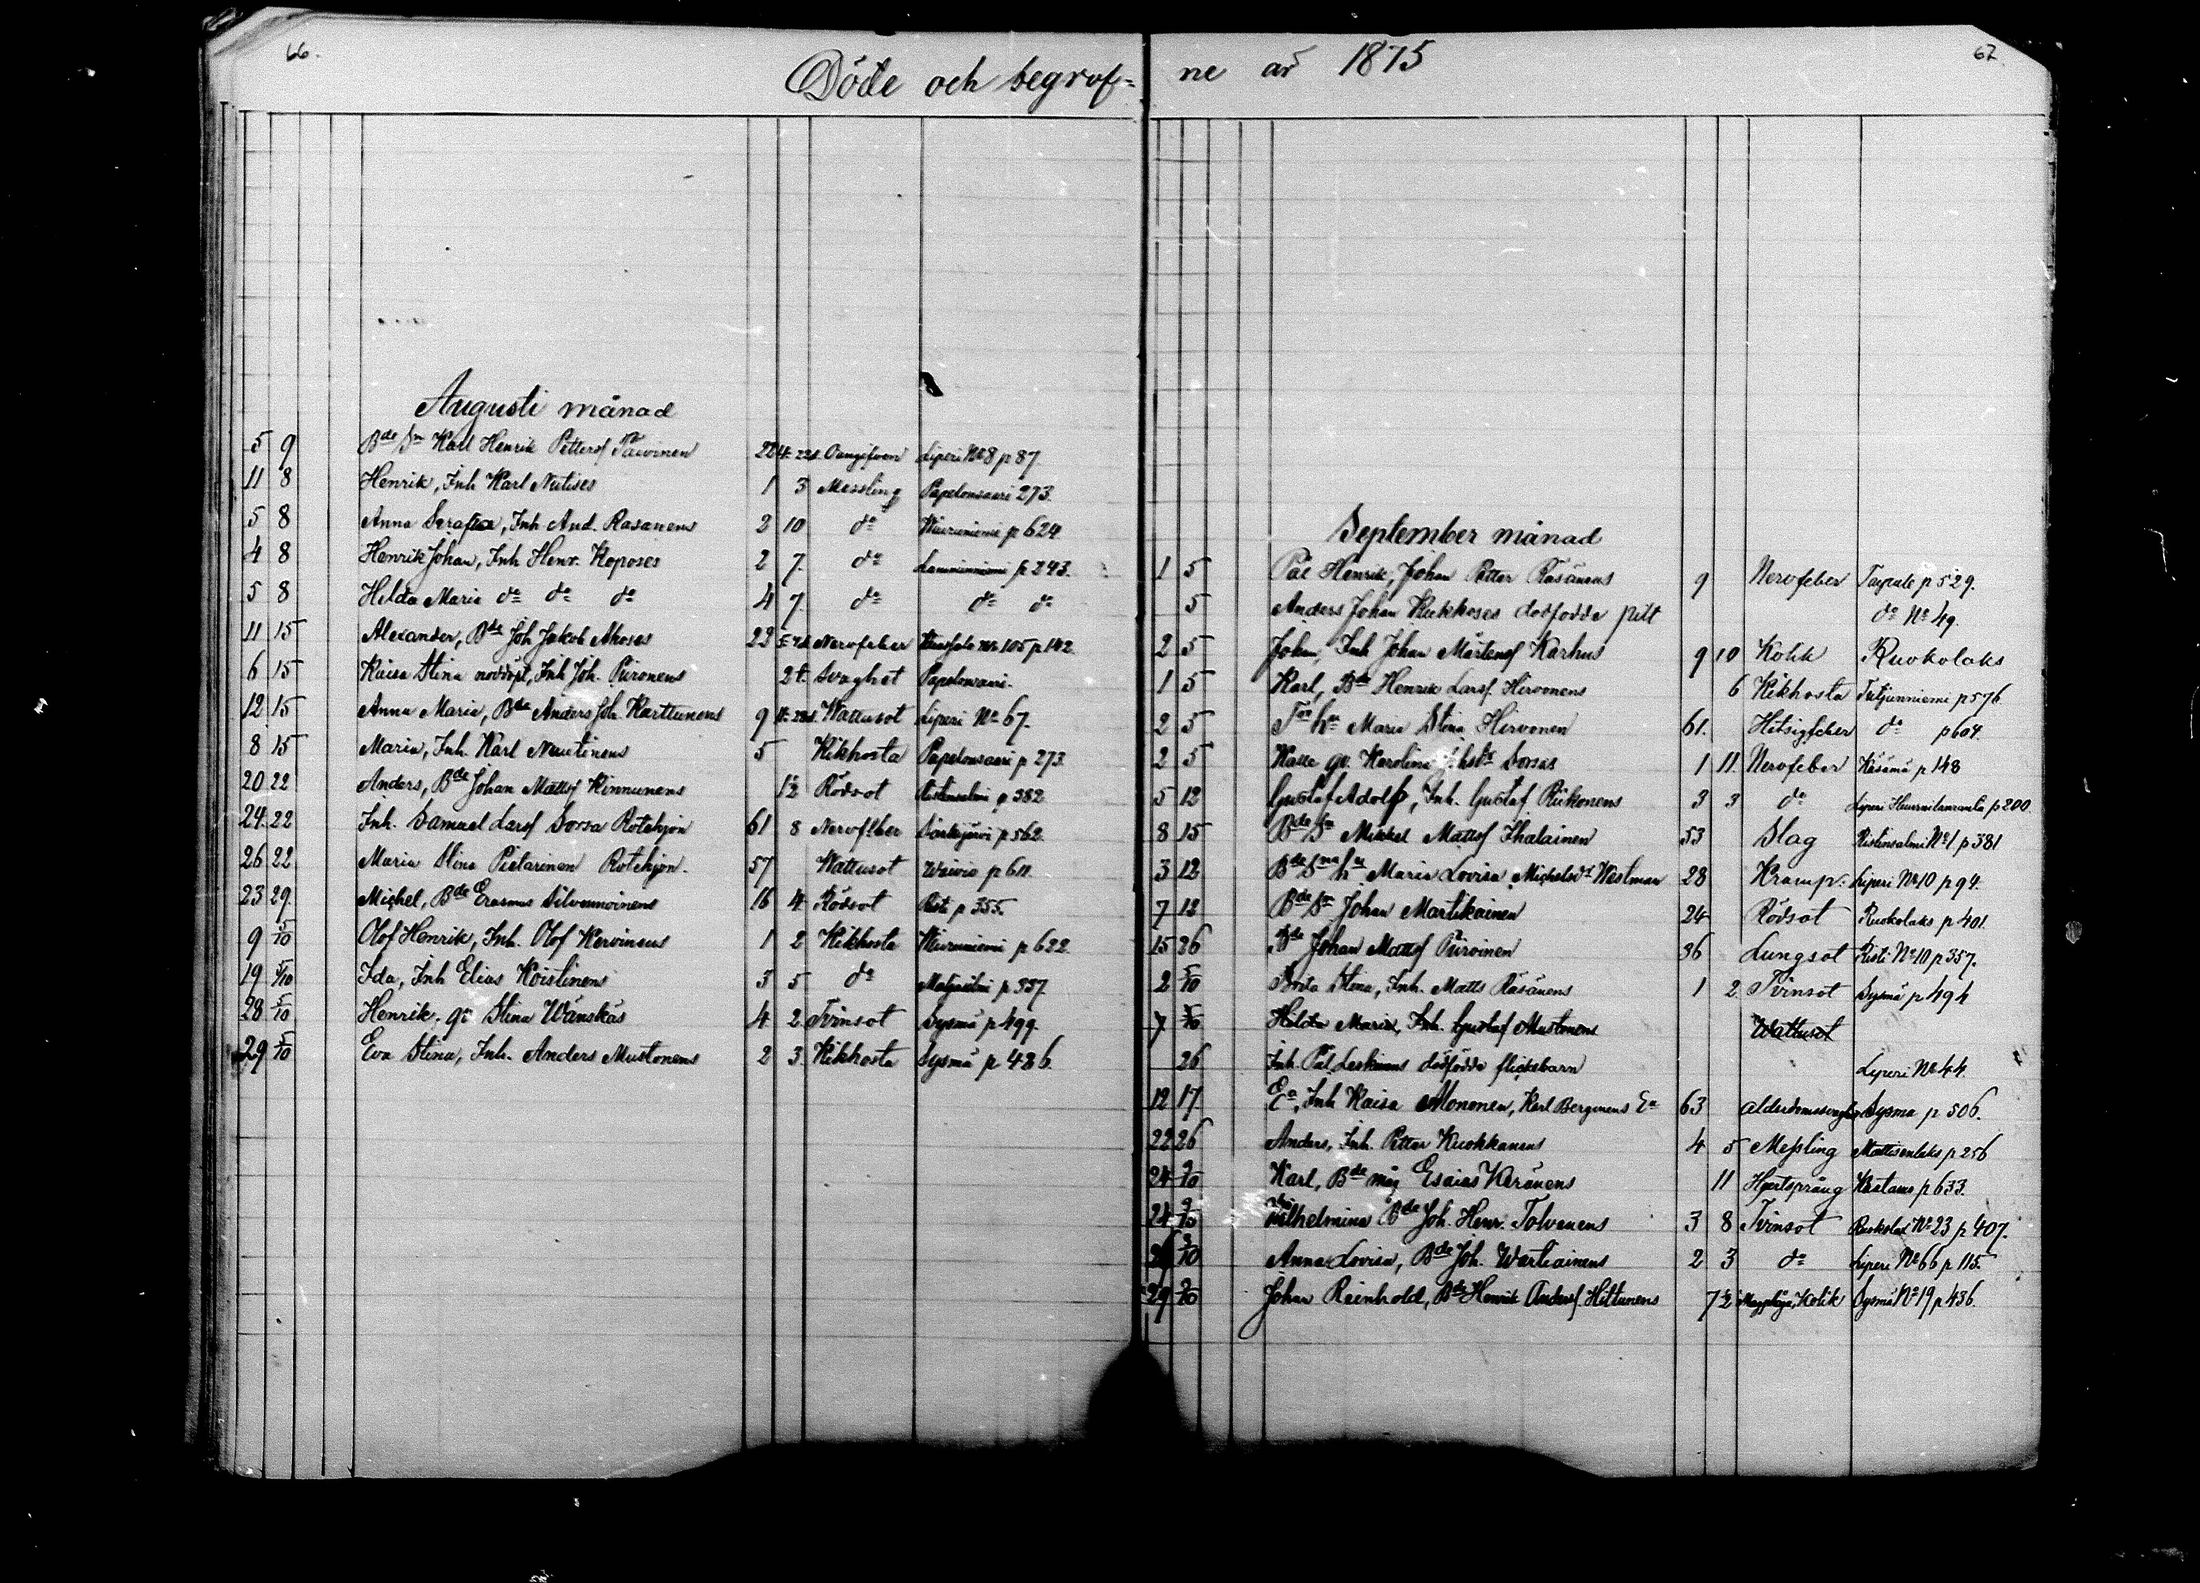 66.
Döde och begrof=
Augusti månad
5 9 Bde Sn Karl Henrik Petterss Paivinen 22 Liperi No 8 p 87.
11 8 Henrik, Inh Karl Nutises 1 3 Messling Papelonsaari 273.
5 8 Anna Serafia, Inh And. Rasanens 2 10 do p 624
4 8 Henrik Johan, Inh Henr. Koposes 2 7. do p 243.
5 8 Hilda Maria do do do 4 7. do do do
11 15 Alexander, Bde Joh Jakob Ahoses 22 Nervfeber No 105 p 142
6 15 Kaisa Stina nöddöpt, Inh Joh. Piironens 2t. Svaghet Papelonsaari.
12 15 Anna Maria, Bde Anders Joh. Karttunens 9 Wattusot Liperi No 67.
8 15 Maria, Inh. Karl Nuutinens 5 Kikhosta Papelonsaari p 273.
20 22 Anders, Bde Johan Mattss Kinnunens 1/2 Rödsot Ristinsalmi p 382
24. 22 Inh. Samuel Larss Sorsa Rotehjon 61 8 Nervfeber Särkijärvi p 562.
26 22 Maria Stina Pietarinen Rotehjon. 57 Wattusot Waivio p 611.
23 29. Michel, Bde Erasmus Silvennoinens 16 4. Rödsot Risti p 355.
9 5/10 Olof Henrik, Inh. Olof Kervinens 1 2 Kikhosta p 622
19 5/10 Ida, Inh Elias Koistinens 3 5 do p 337
28 5/10 Henrik. qv Stina Wänskäs 4 2 Tvinsot Sysmä p 499.
29 5/10 Eva Stina, Inh. Anders Mustonens 2 3. Kikhosta Sysmä p 486.
ne år 1875
67.
September månad
1 5 Pål Henrik, Johan Petter Räsänens 9 Nervfeber Taipale p 529.
5 Anders Johan Kukkoses dödfödde pilt do No 49.
2 5 Johan, Inh Johan Mårtenss Karhus 9 10 Kolik Ruokolaks
1 5 Karl, Bde Henrik Larss. Hirvonens 6 Kikhosta Tutjunniemi p 576
2 5 Maria Stina Hirvonen 61. Hitsigfeber do p 604.
2 5 Kalle qv. Karolina Sorsas 1 11. Nervfeber Käsämä p 148
5 12 Gustaf Adolf, Inh. Gustaf Riikonens 3 3 do Liperi p 200
8 15 Bde Sn Mikkel Mattss Ihalainen 53 Slag Ristinsalmi No 1 p 381
3 12 Bde Maria Lovisa Michelsdr Westman 28 Kramp. Liperi No 10 p 94.
7 12 Bde Sn Johan Martikainen 24 Rödsot Ruokolaks p 401.
15 26 Bde Johan Mattss Piiroinen 36 Lungsot Risti No 10 p 357.
2 5/10 Stina, Inh. Matts Räsänens 1 2 Tvinsot Sysmä p 494
7 5/10 Hilda Maria, Inh. Gustaf Mustonens Wattusot
26 Inh. Pål Leskinens dödfödde flickebarn Liperi No 44.
12 17. Ea, Inh Kaisa Mononen, Karl Bergmans Ea 63 Sysmä p 506.
22 26 Anders, Inh. Petter Kuokkanens 4 5 Messling Mattisenlaks p 256
24 9/10 Karl, Bde måg Esaias Keränens 11 Hjertsprång p 633.
24 Wilhelmina Bde Joh. Henr. Tolvanens 3 8 Tvinsot No 23 p 407.
Anna Lovisa, Bde Joh. Wartiainens 2 3 do Liperi No 66 p 115.
29 Johan Reinhold, Bde Henrik Anderss Hiltunens 7 1/2 Kolik Sysmä No 19 p 436.